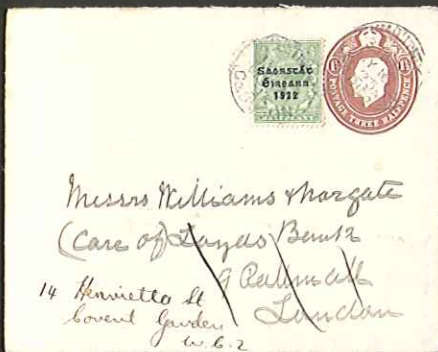 Saorstát
Éireann
1922
POSTAGE THREE HALFPENCE
Messrs Williams & Norgate
(Care of) Loyds Bank
9 Pallmall
London
14 Henrietta St
Covent Garden
W.C.2